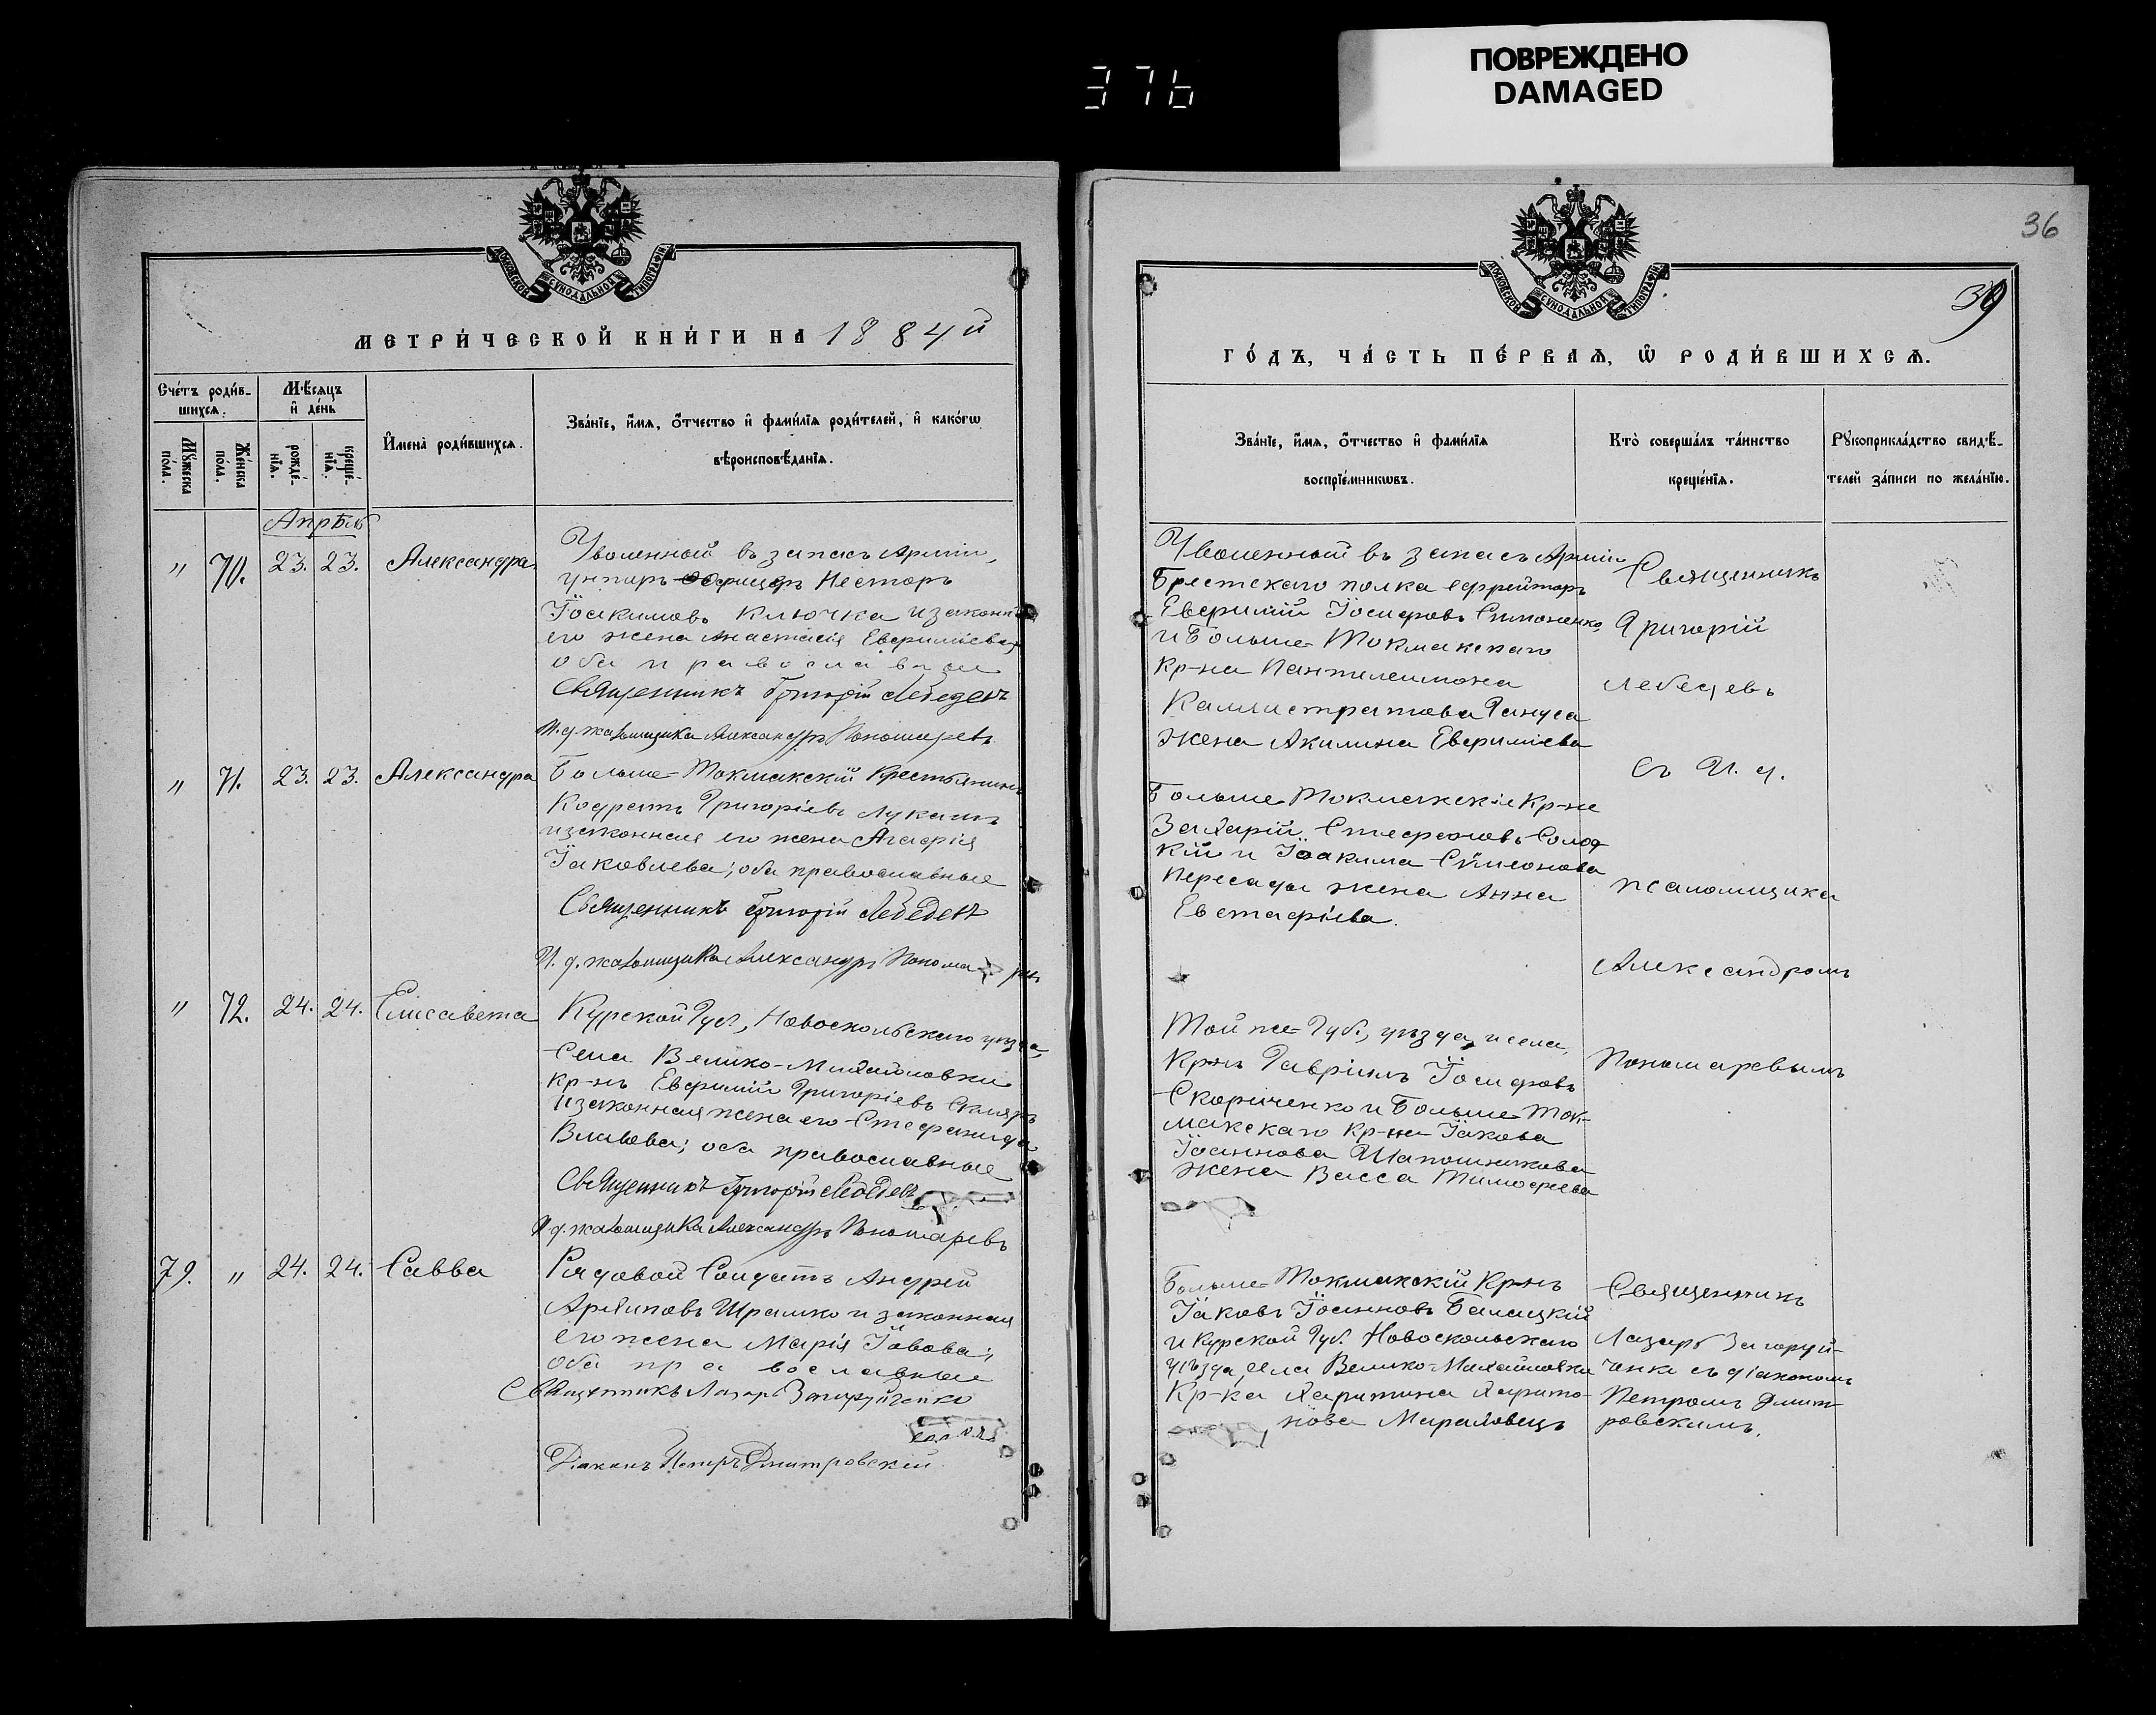 376
ПОВРЕЖДЕНО
DAMAGED
МОСКОВСКОЙ СѴНОДАЛЬНОЙ ТИПОГРАФІИ
МЕТРИ́ЧЕСКОЙ КНИ́ГИ НА 1884й
Сче́тъ роди́в-
шихсѧ.
Мѣ́сѧцъ
и҆ де́нь
И҆мена̀ роди́вшихсѧ.
Зва́нїе, и҆́мѧ, ѻ҆́тчество и҆ фами́лїѧ роди́телей, и҆ како́гѡ
вѣроисповѣ́данїѧ.
Мꙋ́жеска
по́ла.
Же́нска
по́ла.
рожде́-
нїѧ.
креще́-
нїѧ.
Апрѣль
" 70. 23. 23. Александра
Уволенный въ запасъ Арміи,
унтеръ-офицеръ Несторъ
Іоакимовъ Ключка и законн
его жена Анастасія Евфиміева,
оба православные
Священникъ Григорій Лебедевъ
И. д. псаломщика Александръ Пономаревъ
" 71. 23. 23. Александра
Больше-Токмакскій крестьянинъ
Кодратъ Григоріевъ Лукашъ
и законная его жена Агафія
Іаковлева; оба православные
Священникъ Григорій Лебедевъ
И. д. псаломщика Александръ Понома ревъ
" 72. 24. 24. Елисавета
Курской Губ., Новоскольскаго уѣзда,
Села Велико-Михайловки
кр-нъ Евфимій Григоріевъ Скляръ
и законная жена его Стефанида
Власова; оба православные
Священникъ Григорій Лебедевъ
И. д. псаломщика Александръ Пономаревъ
79. " 24. 24. Савва
Рядовой Солдатъ Андрей
Архиповъ Шрамко и законная
его жена Марія Іовова;
оба православные
Священникъ Лазарь Загоруйченко
Діаконъ Петръ Дмитровскій
36
39
МОСКОВСКОЙ СѴНОДАЛЬНОЙ ТИПОГРАФІИ
ГО́ДЪ, ЧА́СТЬ ПЕ́РВАѦ, Ѡ҆ РОДИ́ВШИХСѦ.
Зва́нїе, и҆́мѧ, ѻ҆́тчество и҆ фами́лїѧ
воспрїе́мникѡвъ.
Кто̀ соверша́лъ та́инство
креще́нїѧ.
Рꙋкоприкла́дство свидѣ́-
телей за́писи по жела́нїю.
Уволенный въ запасъ Арміи
Брестскаго полка ефрейторъ
Евфимій Іосифовъ Симоненко,
и Больше-Токмакскаго
кр-на Пантелеимона
Каллистратова Гануса
жена Акилина Евфиміева
Священникъ
Григорій
Лебедевъ
съ И. д.
Больше-Токмакскіе Кр-не
Захарій Стефановъ Солод
кій и Іоакима Симеонова
Пересады жена Анна
Евстафіева.
псаломщика
Александромъ
Той же Губ., уѣзда, и села,
кр-нъ Гавріилъ Іосифовъ
Скориченко и Больше-Ток-
макскаго кр-на Іакова
Іоаннова Шапошникова
жена Васса Тимофеева
Пономаревымъ
Больше-Токмакскій Кр-нъ
Іаковъ Іоанновъ Балацкій
и Курской Губ. Новоскольскаго
уѣзда, села Велико-Михайловки
Кр-ка Харитина Харито-
нова
Священникъ
Лазарь Загоруй-
ченко съ діакономъ
Петромъ Дмит-
ровскимъ.